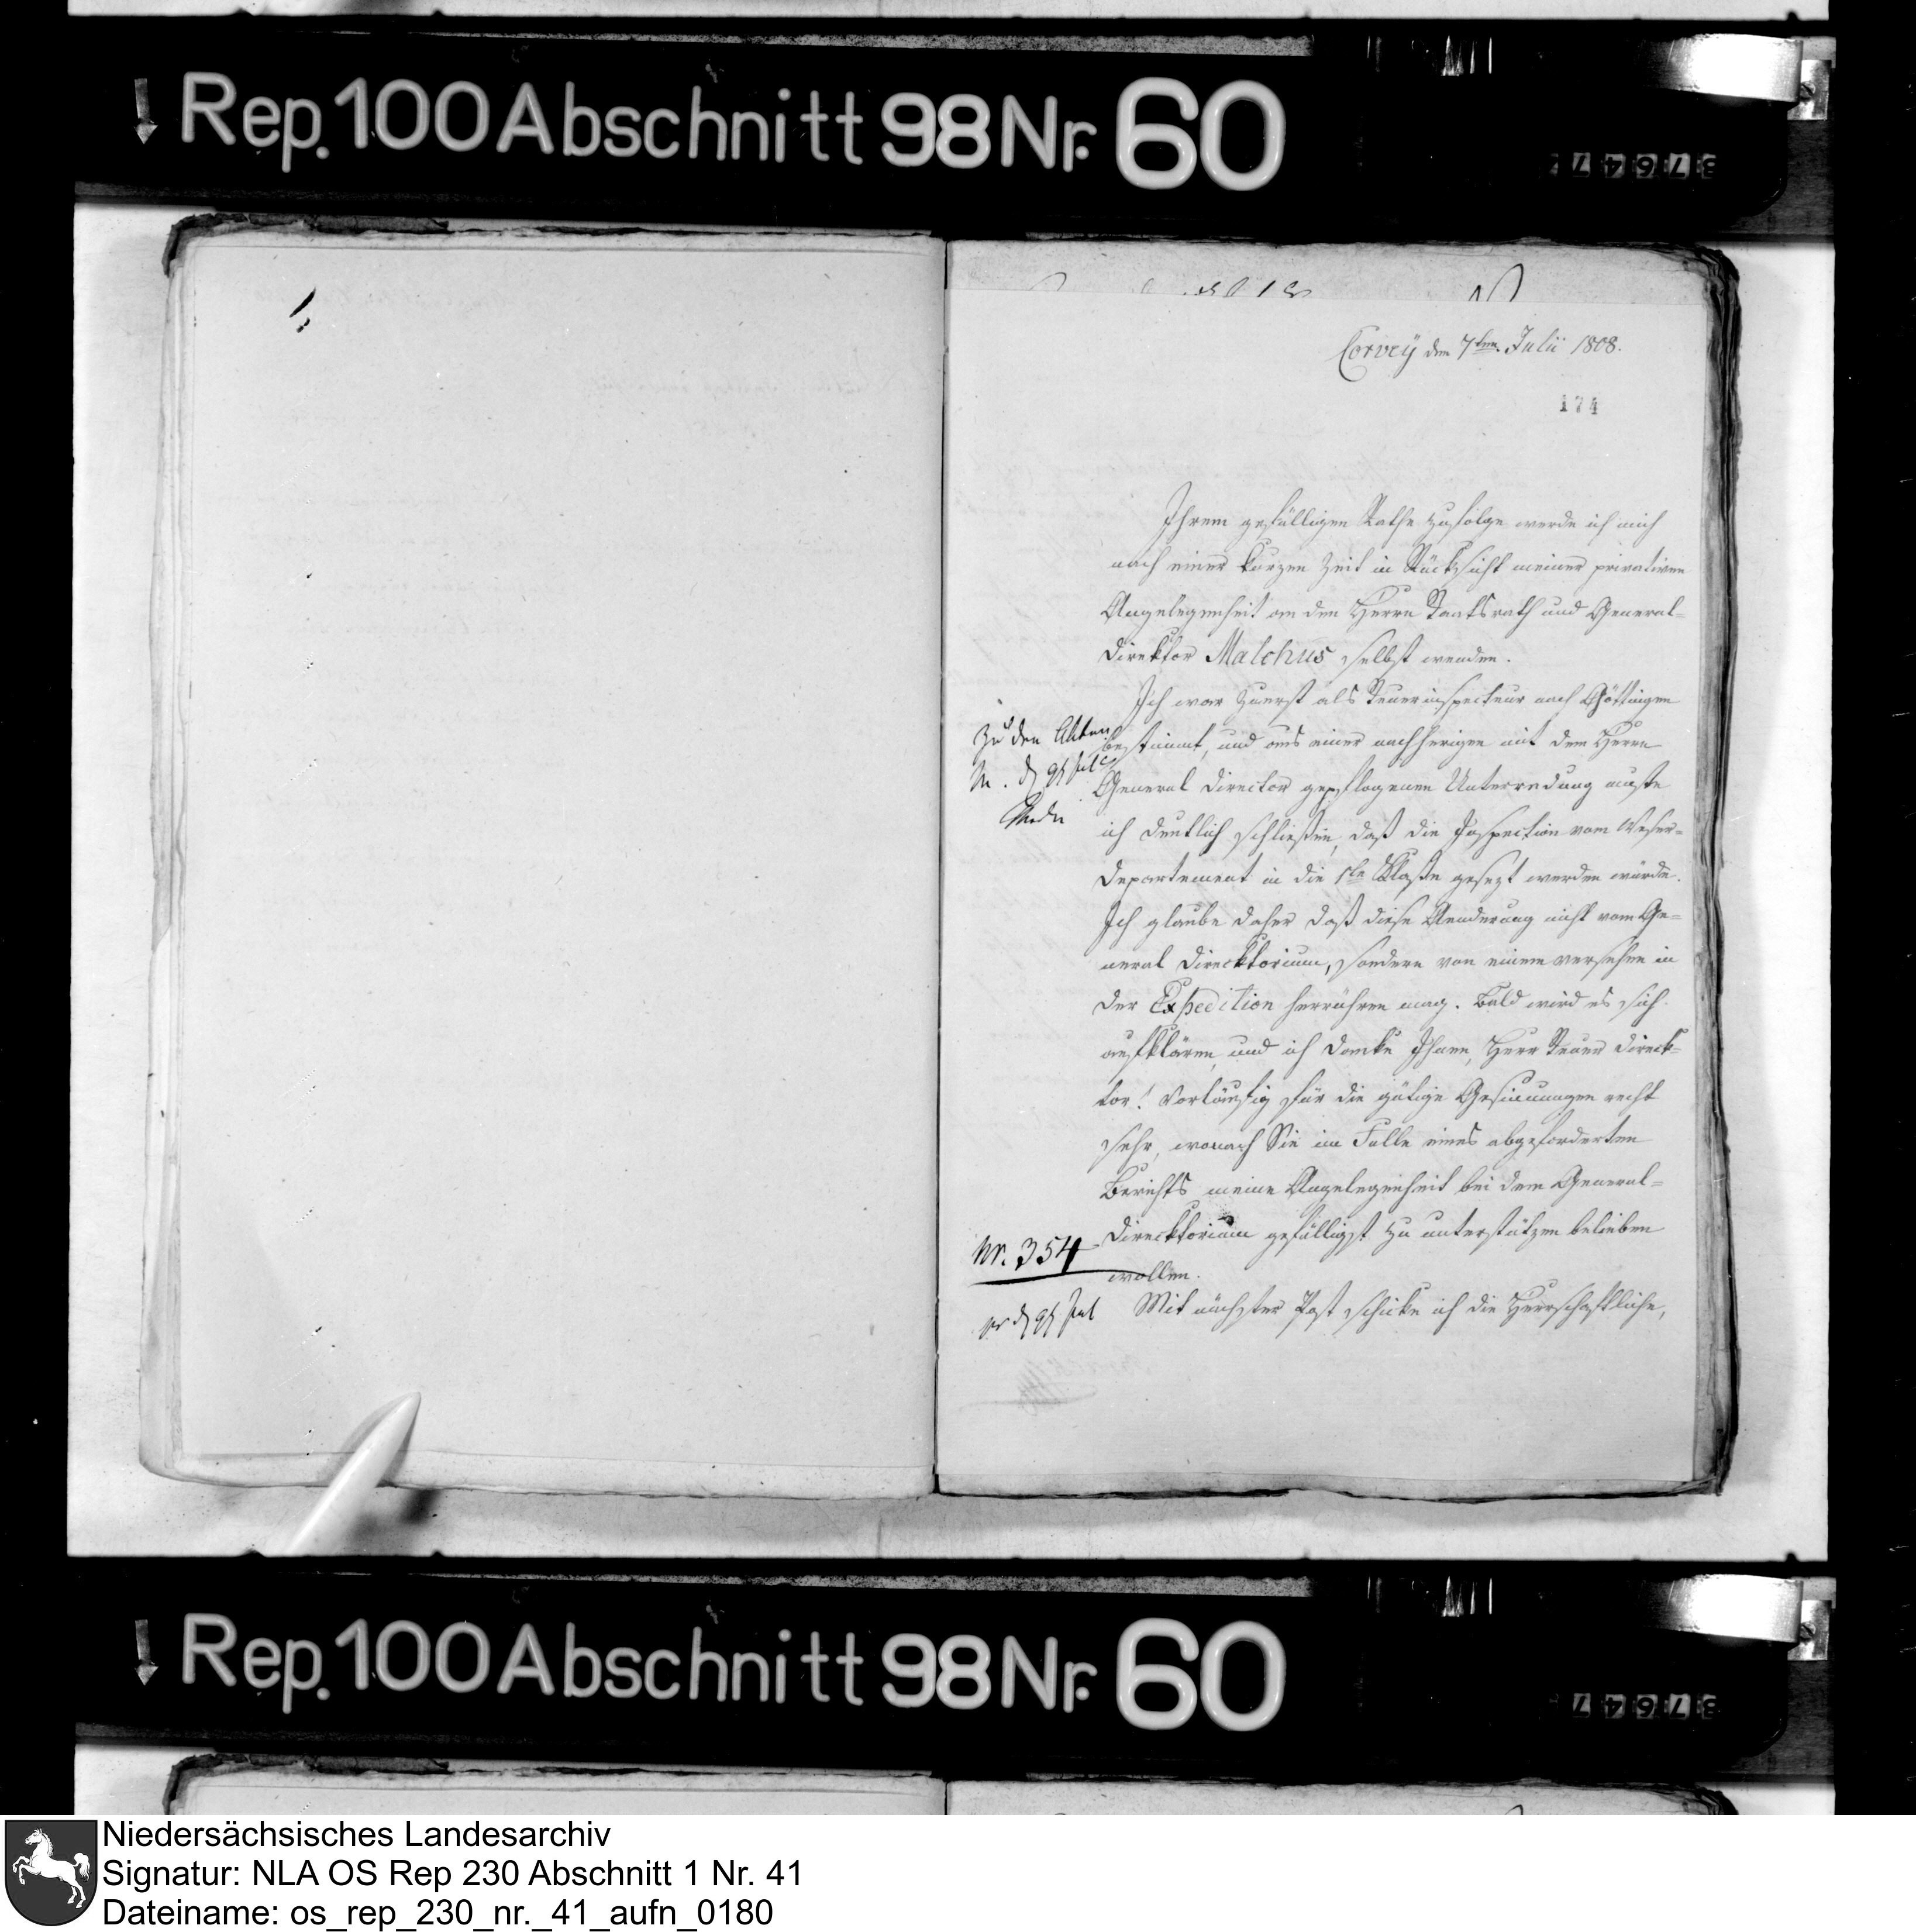 Rep. 100 Abschnitt 98 Nr. 60
37647
Corvey den 7ten Julii 1808.
174
Ihrem gefälligen Rathe zufolge werde ich mich
nach einer kurzen Zeit in Rücksicht meiner privativen
Angelegenheit an den Herrn Staatsrath und General-
direktor Malchus selbst wenden.
Ich war zuerst als Steuerinspecteur nach Göttingen
bestimmt, und aus einer nachherigen mit dem Herrn
General Director gepflogenen Unterredung mußte
ich deutlich schließen, daß die Inspection vom Weser-
departement in die 1te Klaße gesezt werden würde.
Ich glaube daher daß diese Aenderung nicht vom Ge-
neral Direcktorium, sondern von einem versehen in
der Expedition herrühren mag. Bald wird es sich
aufklären, und ich danke Ihnen, Herr Steuer Direck-
tor! vorläufig für die gütige Gesinnungen recht
sehr, wonach Sie im Falle eines abgeforderten
Berichts meine Angelegenheit bei dem General-
Direcktorium gefälligst zu unterstützen belieben
wollen.
Mit nächster Post schicke ich die Herrschaftliche,
Zu den Akten
d 9t Jul
Nr. 354
pr d 9t Jul
Rep. 100 Abschnitt 98 Nr. 60
37647
Niedersächsisches Landesarchiv
Signatur: NLA OS Rep 230 Abschnitt 1 Nr. 41
Dateiname: os_rep_230_nr._41_aufn_0180